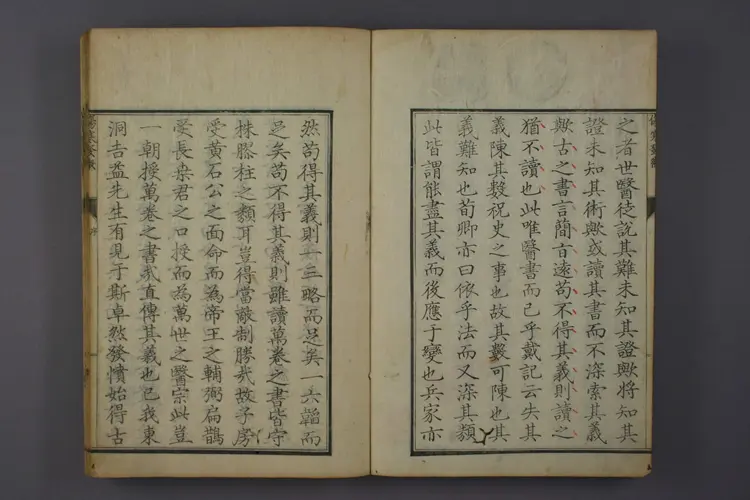 之者世醫徒說其難未知其證歟將知其
證未知其術歟或讀其書而不深索其義
歟古之書言簡旨遠苟不得其義則讀之
猶不讀也此唯醫書而已乎戴記云失其
義陳其數祝史之事也故其數可陳也其
義難知也荀卿亦曰依乎法而又深其類
此皆謂能盡其義而後應于變也兵家亦
然苟得其義則一三略而足矣一六韜而
足矣苟不得其義則雖讀萬卷之書皆守
株膠柱之類耳豈得當敵制勝哉故子房
受黃石公之面命而為帝王之輔弼扁鵲
受長桑君之口授而為萬世之醫宗此豈
一朝授萬卷之書哉直傳其義也已我東
洞吉益先生有見于斯卓然發憤始得古
序